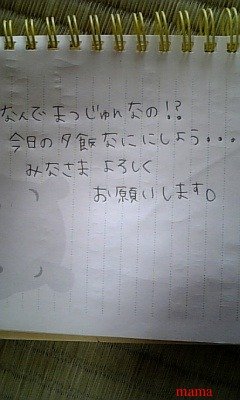 なんでまつじゅんなの!?
今日の夕飯なににしよう・・・
みなさまよろしく
お願いします。
mama